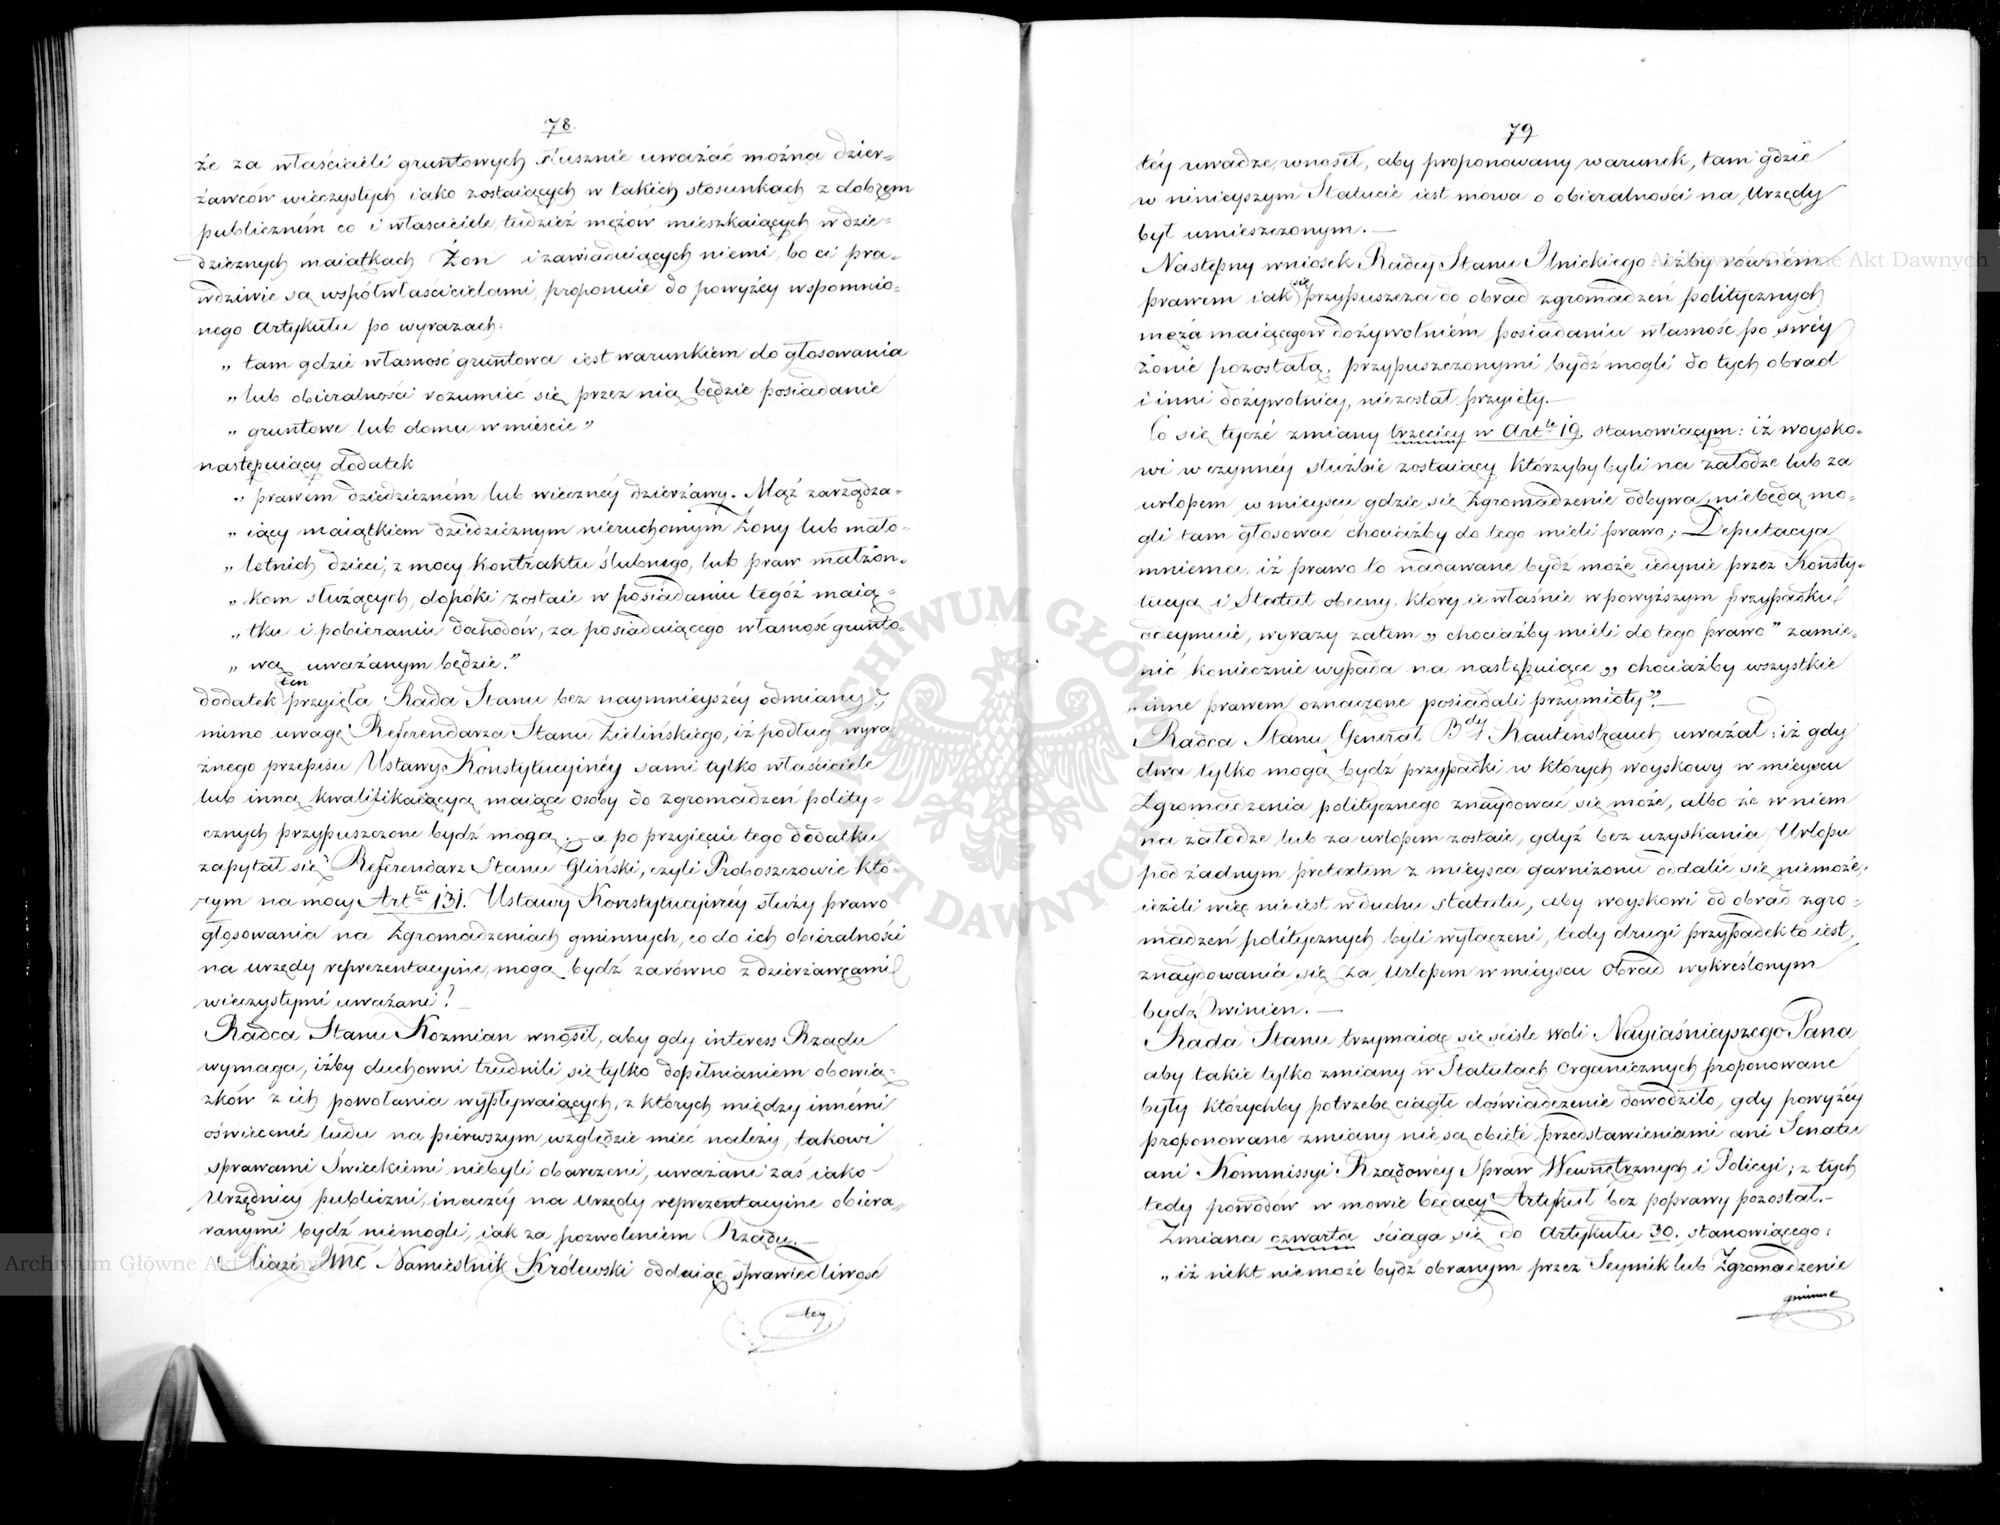 78.
że za właścicieli gruntowych słusznie uważać można dzier-
żawców wieczystych iako zostaiących w takich stosunkach z dobrem
publiczném co i właściciele, tudzież mężów mieszkaiących w dzie-
dzicznych maiątkach Żon i zawiaduiących niemi, bo ci pra-
wdziwie są współwłaścicielami, proponuie do powyżéy wspomnio-
nego Artykułu po wyrazach:
„ tam gdzie własność gruntowa iest warunkiem do głosowania
„ lub obieralności rozumieć się przez nią będzie posiadanie
„ gruntowe lub domu w mieście”
następuiący dodatek
„ prawem dziedziczném lub wiecznéy dzierżawy. Mąż zarządza-
„ iący maiątkiem dziedzicznym nieruchomym Żony lub mało-
„ letnich dzieci, z mocy kontraktu ślubnego, lub praw małżon-
„ kom służących, dopóki zostaie w posiadaniu tegóż maią-
„ tku i pobieraniu dochodów, za posiadaiącego własność grunto-
„ wą uważanym będzie.”
dodatek ten przyięła Rada Stanu bez naymnieyszéy odmiany,
mimo uwagę Referendarza Stanu Zielińskiego, iż podług wyra
źnego przepisu Ustawy Konstytucyinéy sami tylko właściciele
lub inną kwalifikaiącą maiące osoby do zgromadzeń polity-
cznych przypuszczone bydź mogą. — a po przyięciu tego dodatku
zapytał się Referendarz Stanu Gliński, czyli Proboszczowie któ-
rym na mocy Art.tu 131. Ustawy Konstytucyinéy służy prawo
głosowania na Zgromadzeniach gminnych, co do ich obieralności
na urzędy reprezentacyine, mogą bydź zarówno z dzierżawcami
wieczystymi uważani? —
Radca Stanu Kozmian wnosił, aby gdy interess Rządu
wymaga, iżby duchowni trudnili się tylko dopełnianiem obowią-
zków z ich powołania wypływaiących, z których między innémi
oświecenie ludu na pierwszym względzie mieć należy, takowi
sprawami Świeckiémi niebyli obarczeni, uważani zaś iako
Urzędnicy publiczni, inaczéy na Urzędy reprezentacyine obiera-
ranymi bydź niemogli, iak za pozwoleniem Rządu. —
Xiążę Jmć Namiestnik Królewski oddaiąc sprawiedliwość
téy
79
téy uwadze, wnosił, aby proponowany warunek, tam gdzie
w ninieyszym Statucie iest mowa o obieralności na Urzędy
był umieszczonym. —
Następny wniosek Radcy Stanu Ilnickiego iżby równém
prawem iak się przypuszcza do obrad zgromadzeń politycznych
męża maiącego w dożywotniém posiadaniu własność po swéy
żonie pozostałą, przypuszczonymi bydź mogli do tych obrad
i inni dożywotnicy, niezostał przyięty. —
Co się tycze zmiany trzeciéy w Art.le 19. stanowiącym: iż woysko-
wi w czynnéy służbie zostaiący którzyby byli na załodze lub za
urlopem w mieyscu gdzie się Zgromadzenie odbywa, niebędą mo-
gli tam głosować chociażby do tego mieli prawo; Deputacya
mniema, iż prawo to nadawane bydź może iedynie przez Konsty-
tucyą i Statut obecny, który ie właśnie w powyższym przypadku
odeymuie, wyrazy zatem „ chociażby mieli do tego prawo” zamie-
nić koniecznie wypada na następuiące „ chociażby wszystkie
„ inne prawem oznaczone posiadali przymioty”. —
Radca Stanu Generał B.dy Rautenstrauch uważał: iż gdy
dwa tylko mogą bydź przypadki w których woyskowy w mieyscu
Zgromadzenia politycznego znaydować się może, albo że w niem
na załodze lub za urlopem zostaie, gdyż bez uzyskania Urlopu
pod żadnym pretextem z mieysca garnizonu oddalić się niemoże;
ieżeli więc nieiest w duchu statutu, aby woyskowi od obrad zgro-
madzeń politycznych byli wyłączeni, tedy drugi przypadek to iest,
znaydowania się za Urlopem w mieyscu obrad wykreślonym
bydź winien. —
Rada Stanu trzymaiąc się ściśle woli Nayiaśnieyszego Pana
aby takie tylko zmiany w Statutach Organicznych proponowane
były którychby potrzebę ciągłe doświadczenie dowodziło, gdy powyżéy
proponowane zmiany nie są obięte przedstawieniami ani Senatu
ani Kommissyi Rządowéy Spraw Wewnętrznych i Policyi; z tych
tedy powodów w mowie będący Artykuł bez poprawy pozostał. —
Zmiana czwarta ściąga się do Artykułu 30. stanowiącego:
„ iż nikt niemoże bydź obranym przez Seymik lub Zgromadzenie
gminne
ARCHIWUM GŁÓWNE AKT DAWNYCH
Archiwum Główne Akt Dawnych
Archiwum Główne Akt Dawnych